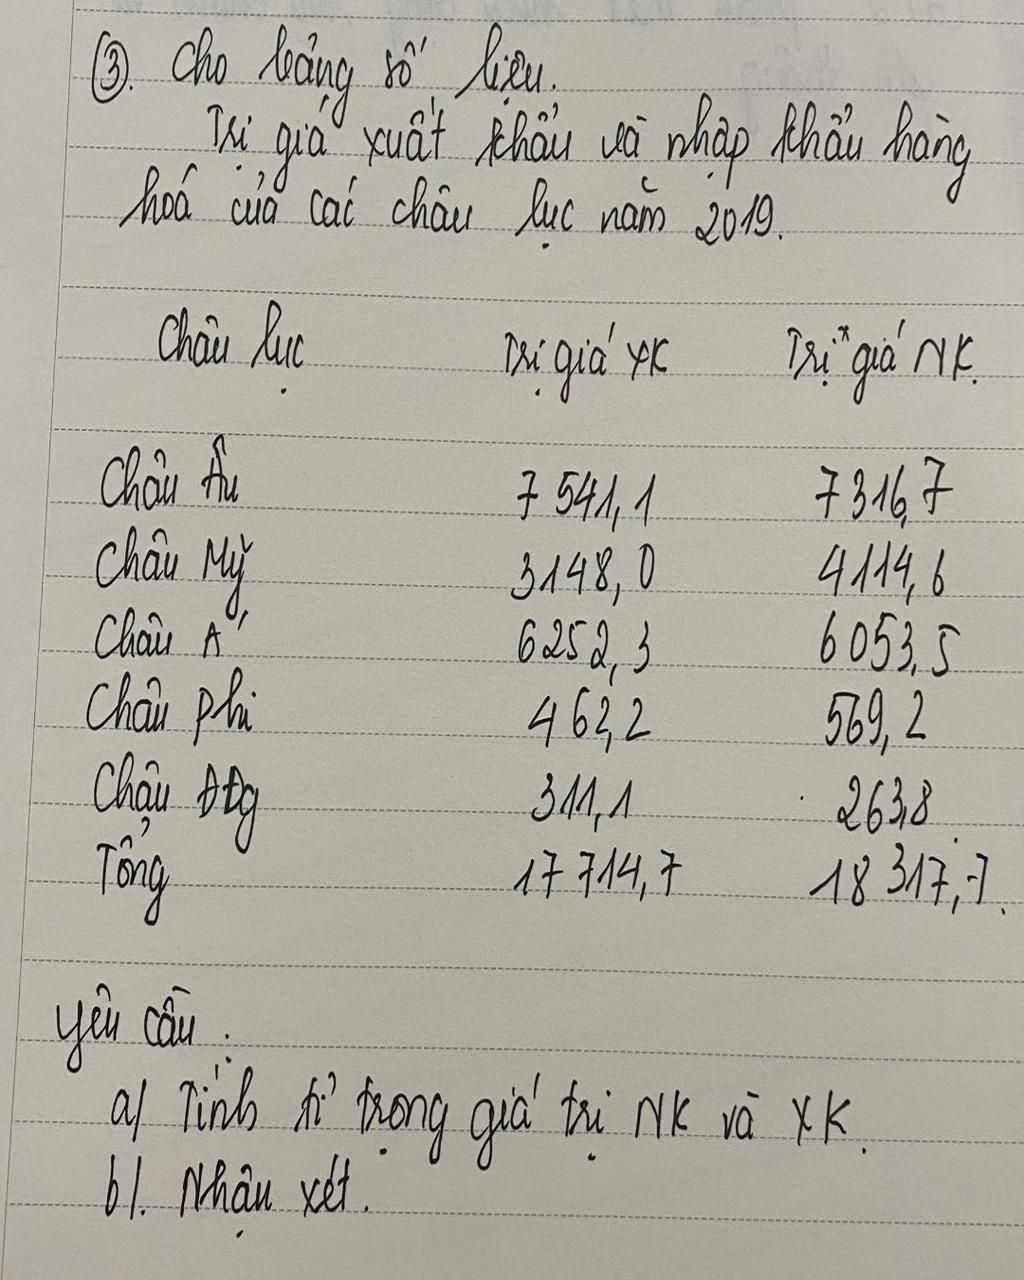 ③. Cho bảng số liệu.
Trị giá xuất khẩu và nhập khẩu hàng
hoá của các châu lục năm 2019.
Châu lục Trị giá XK Trị giá NK.
Châu Âu 7 541,1 7 316,7
Châu Mỹ 3148,0 4114,6
Châu Á 6252,3 6053,5
Châu phi 462,2 569,2
Châu ĐDg 311,1 263,8
Tổng 17 714,7 18 317,7.
Yêu cầu:
a/ Tính tỉ trọng giá trị NK và XK.
b/. Nhận xét.